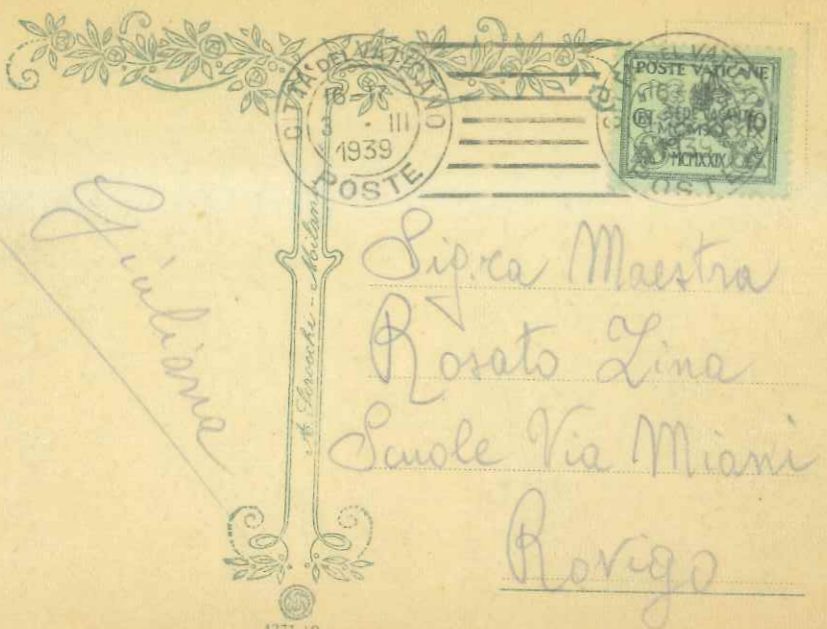 CITTA' DEL VATICANO
16-17
3 · III
1939
POSTE
POSTE VATICANE
SEDE VACANTE
MCMXXXIX
MCMXXIX
Giuliana
Milano
Sig.ra Maestra
Rosato Lina
Scuole Via Miani
Rovigo